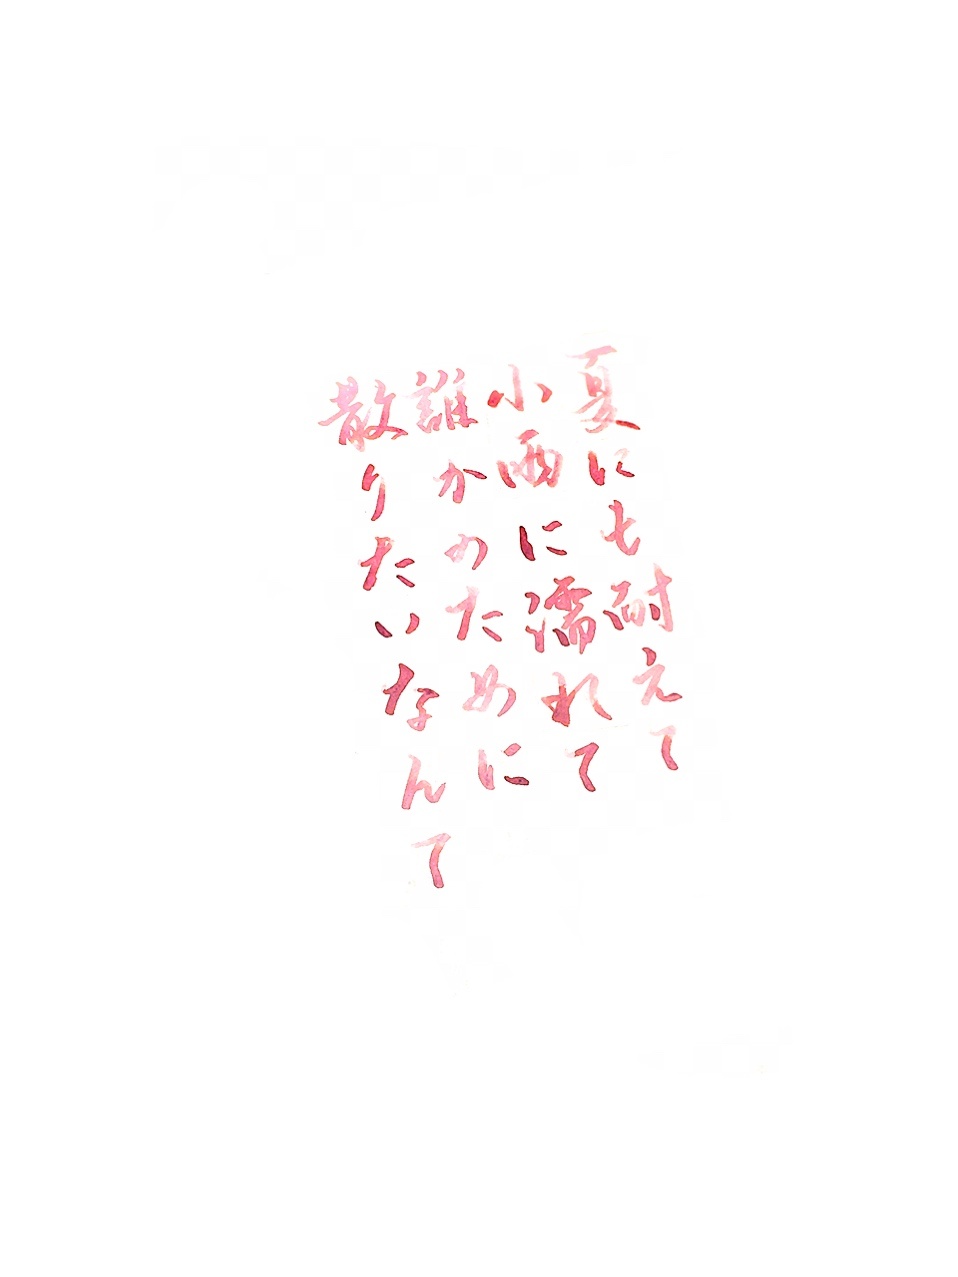 夏にも耐えて
小雨に濡れて
誰かのために
散りたいなんて